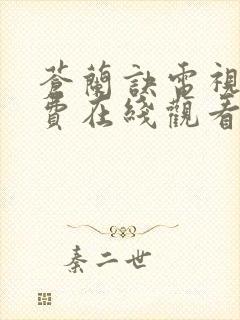 蒼蘭訣電視
費在綫觀看
秦二世